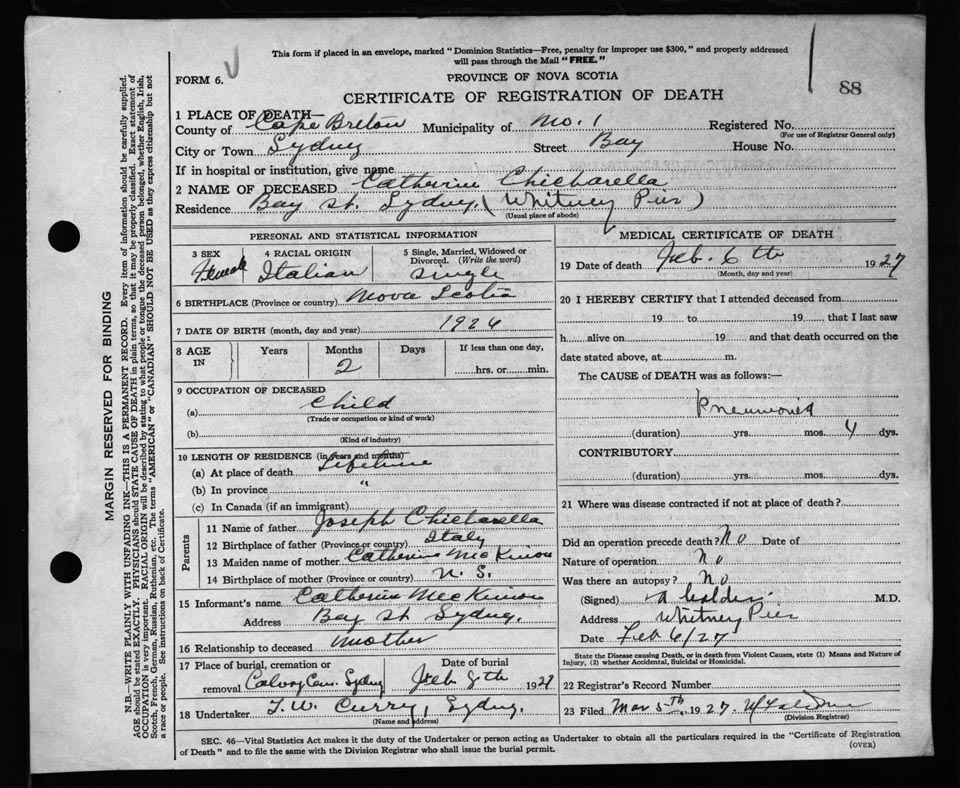 This form if placed in an envelope, marked "Dominion Statistics—Free, penalty for improper use $300," and properly addressed
will pass through the Mail "FREE."
FORM 6.
PROVINCE OF NOVA SCOTIA
CERTIFICATE OF REGISTRATION OF DEATH
88
1 PLACE OF DEATH—
County of Cape Breton Municipality of No. 1 Registered No.
(For use of Registrar General only)
City or Town Sydney Street Bay House No.
If in hospital or institution, give name
2 NAME OF DECEASED Catherine Chicharella
Residence Bay St. Sydney. (Whitney Pier)
(Usual place of abode)
PERSONAL AND STATISTICAL INFORMATION
3 SEX Female
4 RACIAL ORIGIN Italian
5 Single, Married, Widowed or Divorced. (Write the word) Single
6 BIRTHPLACE (Province or country) Nova Scotia
7 DATE OF BIRTH (month, day and year) 1926
8 AGE IN Years Months 2 Days If less than one day, hrs. or min.
9 OCCUPATION OF DECEASED
(a) Child
(Trade or occupation or kind of work)
(b)
(Kind of industry)
10 LENGTH OF RESIDENCE (in years and months)
(a) At place of death Lifetime
(b) In province "
(c) In Canada (if an immigrant)
Parents
11 Name of father Joseph Chicharella
12 Birthplace of father (Province or country) Italy
13 Maiden name of mother Catherine McKinnon
14 Birthplace of mother (Province or country) N. S.
15 Informant's name Catherine McKinnon
Address Bay St Sydney.
16 Relationship to deceased Mother
17 Place of burial, cremation or removal Calvary Cem. Sydney Date of burial Feb 8th 1927
18 Undertaker T. W. Curry, Sydney.
(Name and address)
MEDICAL CERTIFICATE OF DEATH
19 Date of death Feb. 6th 1927
(Month, day and year)
20 I HEREBY CERTIFY that I attended deceased from
19 to 19 that I last saw
h alive on 19 and that death occurred on the
date stated above, at m.
The CAUSE of DEATH was as follows:—
Pneumonia
(duration) yrs. mos. 4 dys.
CONTRIBUTORY
(duration) yrs. mos. dys.
21 Where was disease contracted if not at place of death?
Did an operation precede death? No Date of
Nature of operation No
Was there an autopsy? No
(Signed) A M.D.
Address Whitney Pier
Date Feb 6/27
State the Disease causing Death, or in death from Violent Causes, state (1) Means and Nature of
Injury, (2) whether Accidental, Suicidal or Homicidal.
22 Registrar's Record Number
23 Filed Mar 5th, 1927.
(Division Registrar)
SEC. 46—Vital Statistics Act makes it the duty of the Undertaker or person acting as Undertaker to obtain all the particulars required in the "Certificate of Registration
of Death" and to file the same with the Division Registrar who shall issue the burial permit.
(OVER)
MARGIN RESERVED FOR BINDING
N.B.—WRITE PLAINLY WITH UNFADING INK—THIS IS A PERMANENT RECORD. Every item of information should be carefully supplied.
AGE should be stated EXACTLY. PHYSICIANS should STATE CAUSE OF DEATH in plain terms, so that it may be properly classified. Exact statement of
OCCUPATION is very important. RACIAL ORIGIN will be described by stating to what people or tongue the deceased person belonged, whether English, Irish,
Scotch, French, German, Russian, Ruthenian, etc. The terms "AMERICAN" or "CANADIAN" SHOULD NOT BE USED as they express citizenship but not
a race or people. See instructions on back of Certificate.